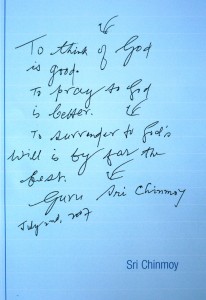 To think of God
is good.
To pray to God
is better.
To surrender to God's
Will is by far the
best.
Guru Sri Chinmoy
2007
Sri Chinmoy